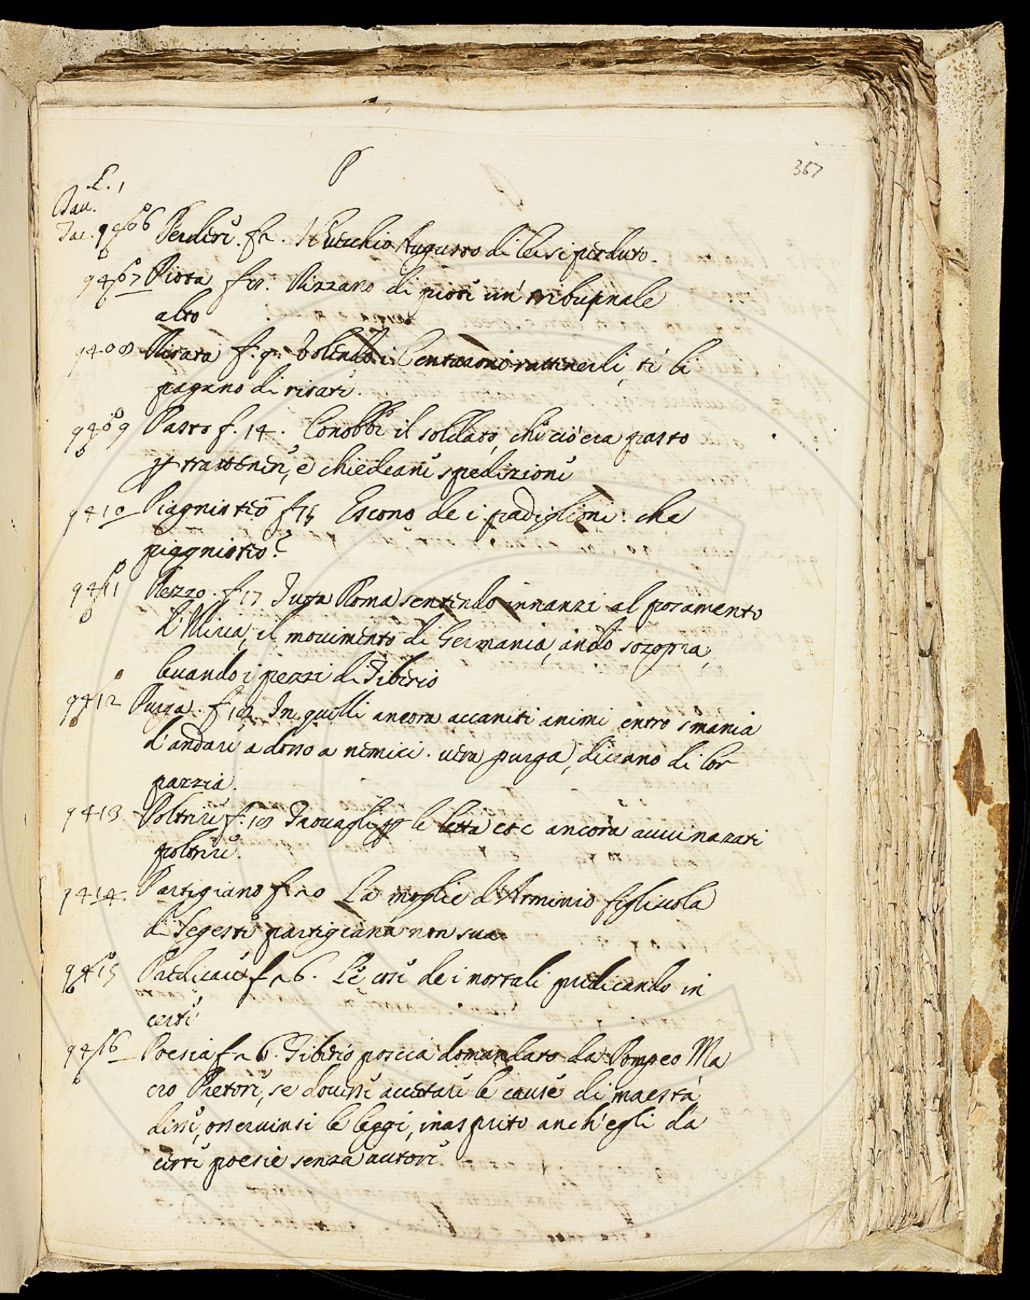 P
367
L. 1
Dav.
Tac. 9406 Perdere. f 2. Il vecchio Augusto di lei si perduto.
9407 Piota f 8. Rizzano di piote un' tribunale
alto
9408 Risata f. 9. Volendo i Centurioni rattenerli, ti li
pagano di risate.
9409 Pasto f. 14. Conobbe il soldato, che ciò era pasto
p trattenere, e chiedeano spedizione
9410 Piagnisteo f 15 Escono de i padiglioni: che
piagnisteo?
9411 Pezzo. f. 17 Tutta Roma sentendo innanzi al posamento
d'Illiria, il movimento di Germania, andò sozopra,
levando i pezzi di Tiberio
9412 Purga. f 18. In quelli ancora accaniti animi entrò smania
d'andare adosso a nemici. vera purga, diceano di lor
pazzia.
9413 Poltrire f. 18 Travagli p le letta e e ancora avvinazati
poltrire.
9414. Partigiano f. 20 La moglie d'Arminio figliuola
di Segeste partigiana non sua
9415 Predicare f 26. Le cose de i mortali predicando in
certe
9416 Poesia f 26. Tiberio poscia domandato da Pompeo Ma
cro Pretore, se dovesse accettare le cause di maestà
disse, osservinsi le leggi, inasprito anch'egli da
certe poesie senza autore